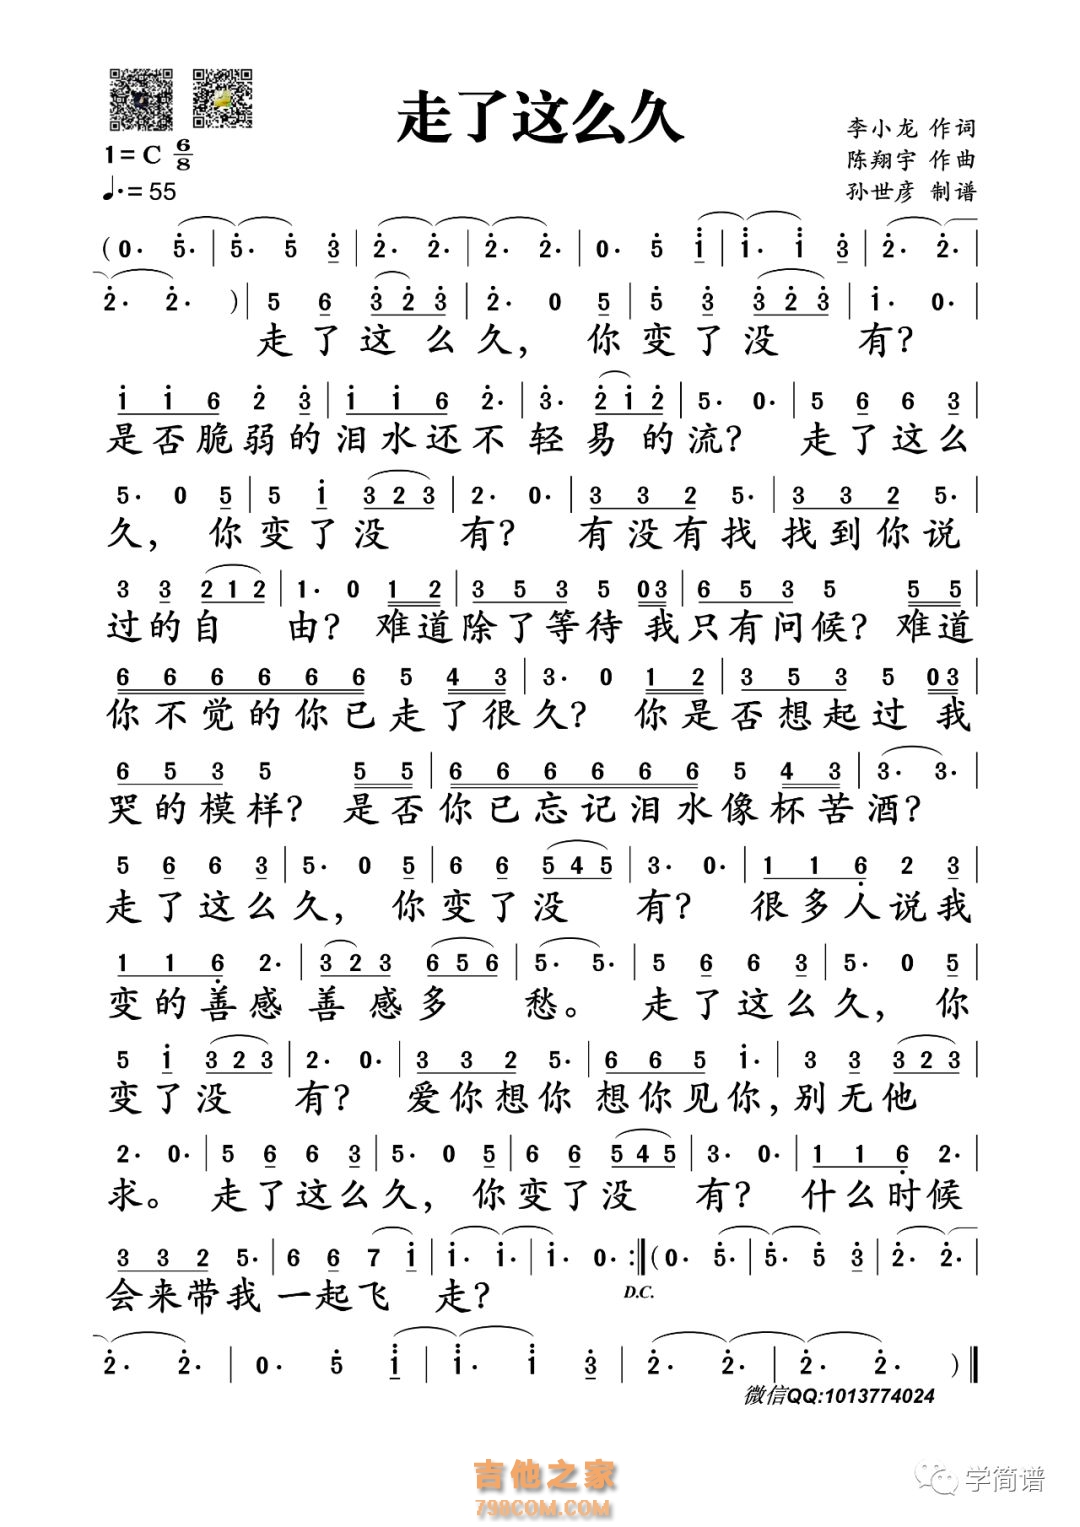 走了这么久
李小龙 作词
陈翔宇 作曲
孙世彦 制谱
1=C 6/8
♩.=55
(0. 5. | 5. 5 3 | 2. 2. | 2. 2. | 0. 5 i | i. i 3 | 2. 2. |
2. 2. ) | 5 6 3 2 3 | 2. 0 5 | 5 3 3 2 3 | i. 0. |
走了这么久，你变了没有？
i i 6 2 3 | i i 6 2. | 3. 2 i 2 | 5. 0. | 5 6 6 3 |
是否脆弱的泪水还不轻易的流？走了这么
5. 0 5 | 5 i 3 2 3 | 2. 0. | 3 3 2 5. | 3 3 2 5. |
久，你变了没有？有没有找找到你说
3 3 2 1 2 | 1. 0 1 2 | 3 5 3 5 0 3 | 6 5 3 5 5 5 |
过的自由？难道除了等待我只有问候？难道
6 6 6 6 6 6 5 4 3 | 3. 0 1 2 | 3 5 3 5 0 3 |
你不觉的你已走了很久？你是否想起过我
6 5 3 5 5 5 | 6 6 6 6 6 6 5 4 3 | 3. 3. |
哭的模样？是否你已忘记泪水像杯苦酒？
5 6 6 3 | 5. 0 5 | 6 6 5 4 5 | 3. 0. | 1 1 6 2 3 |
走了这么久，你变了没有？很多人说我
1 1 6 2. | 3 2 3 6 5 6 | 5. 5. | 5 6 6 3 | 5. 0 5 |
变的善感善感多愁。走了这么久，你
5 i 3 2 3 | 2. 0. | 3 3 2 5. | 6 6 5 i. | 3 3 3 2 3 |
变了没有？爱你想你想你见你，别无他
2. 0. | 5 6 6 3 | 5. 0 5 | 6 6 5 4 5 | 3. 0. | 1 1 6 2. |
求。走了这么久，你变了没有？什么时候
3 3 2 5. | 6 6 7 i | i. i. | i. 0. :|| (0. 5. | 5. 5 3 | 2. 2. |
会来带我一起飞走？
D.C.
2. 2. | 0. 5 i | i. i 3 | 2. 2. | 2. 2. ) ||
微信QQ:1013774024
吉他之家
798COM.COM
学简谱